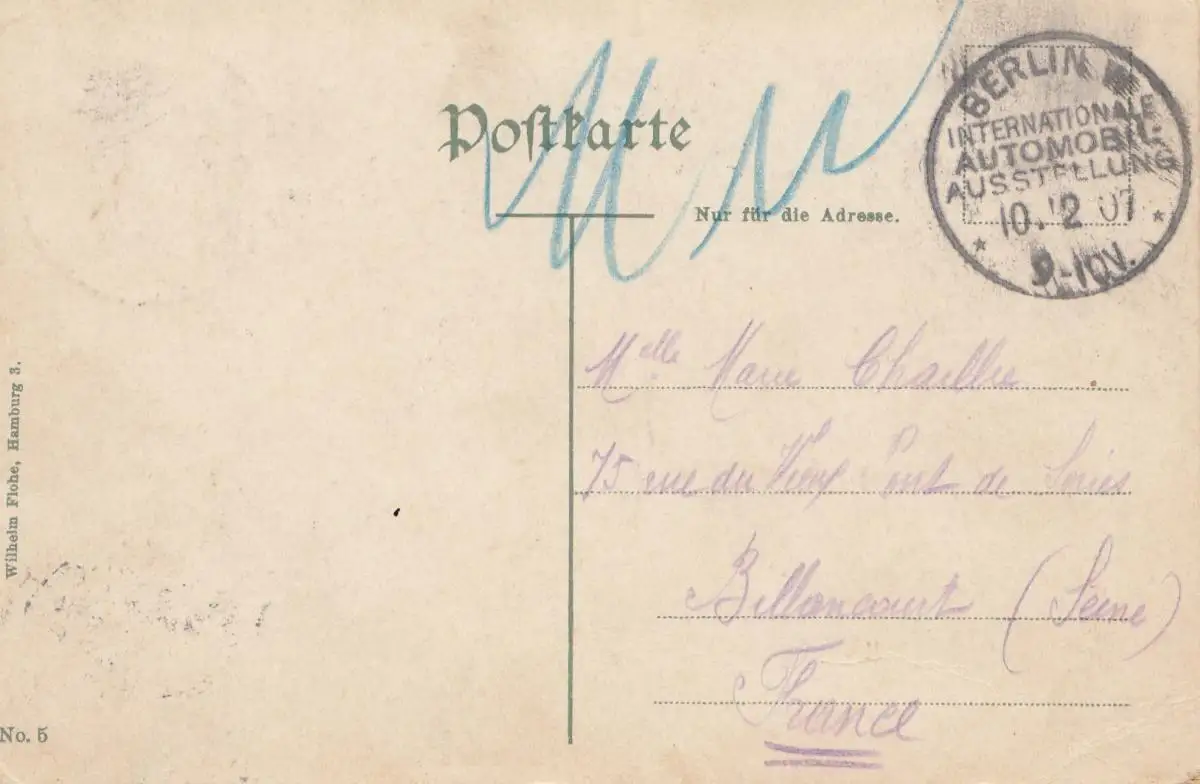 Postkarte
Nur für die Adresse.
BERLIN W
INTERNATIONALE
AUTOMOBIL-
AUSSTELLUNG
10.12 07
9-10V.
Melle Marie
75 rue du Vieux Pont de Sèvres
Billancourt (Seine)
France
Wilhelm Flohe, Hamburg 3.
No. 5